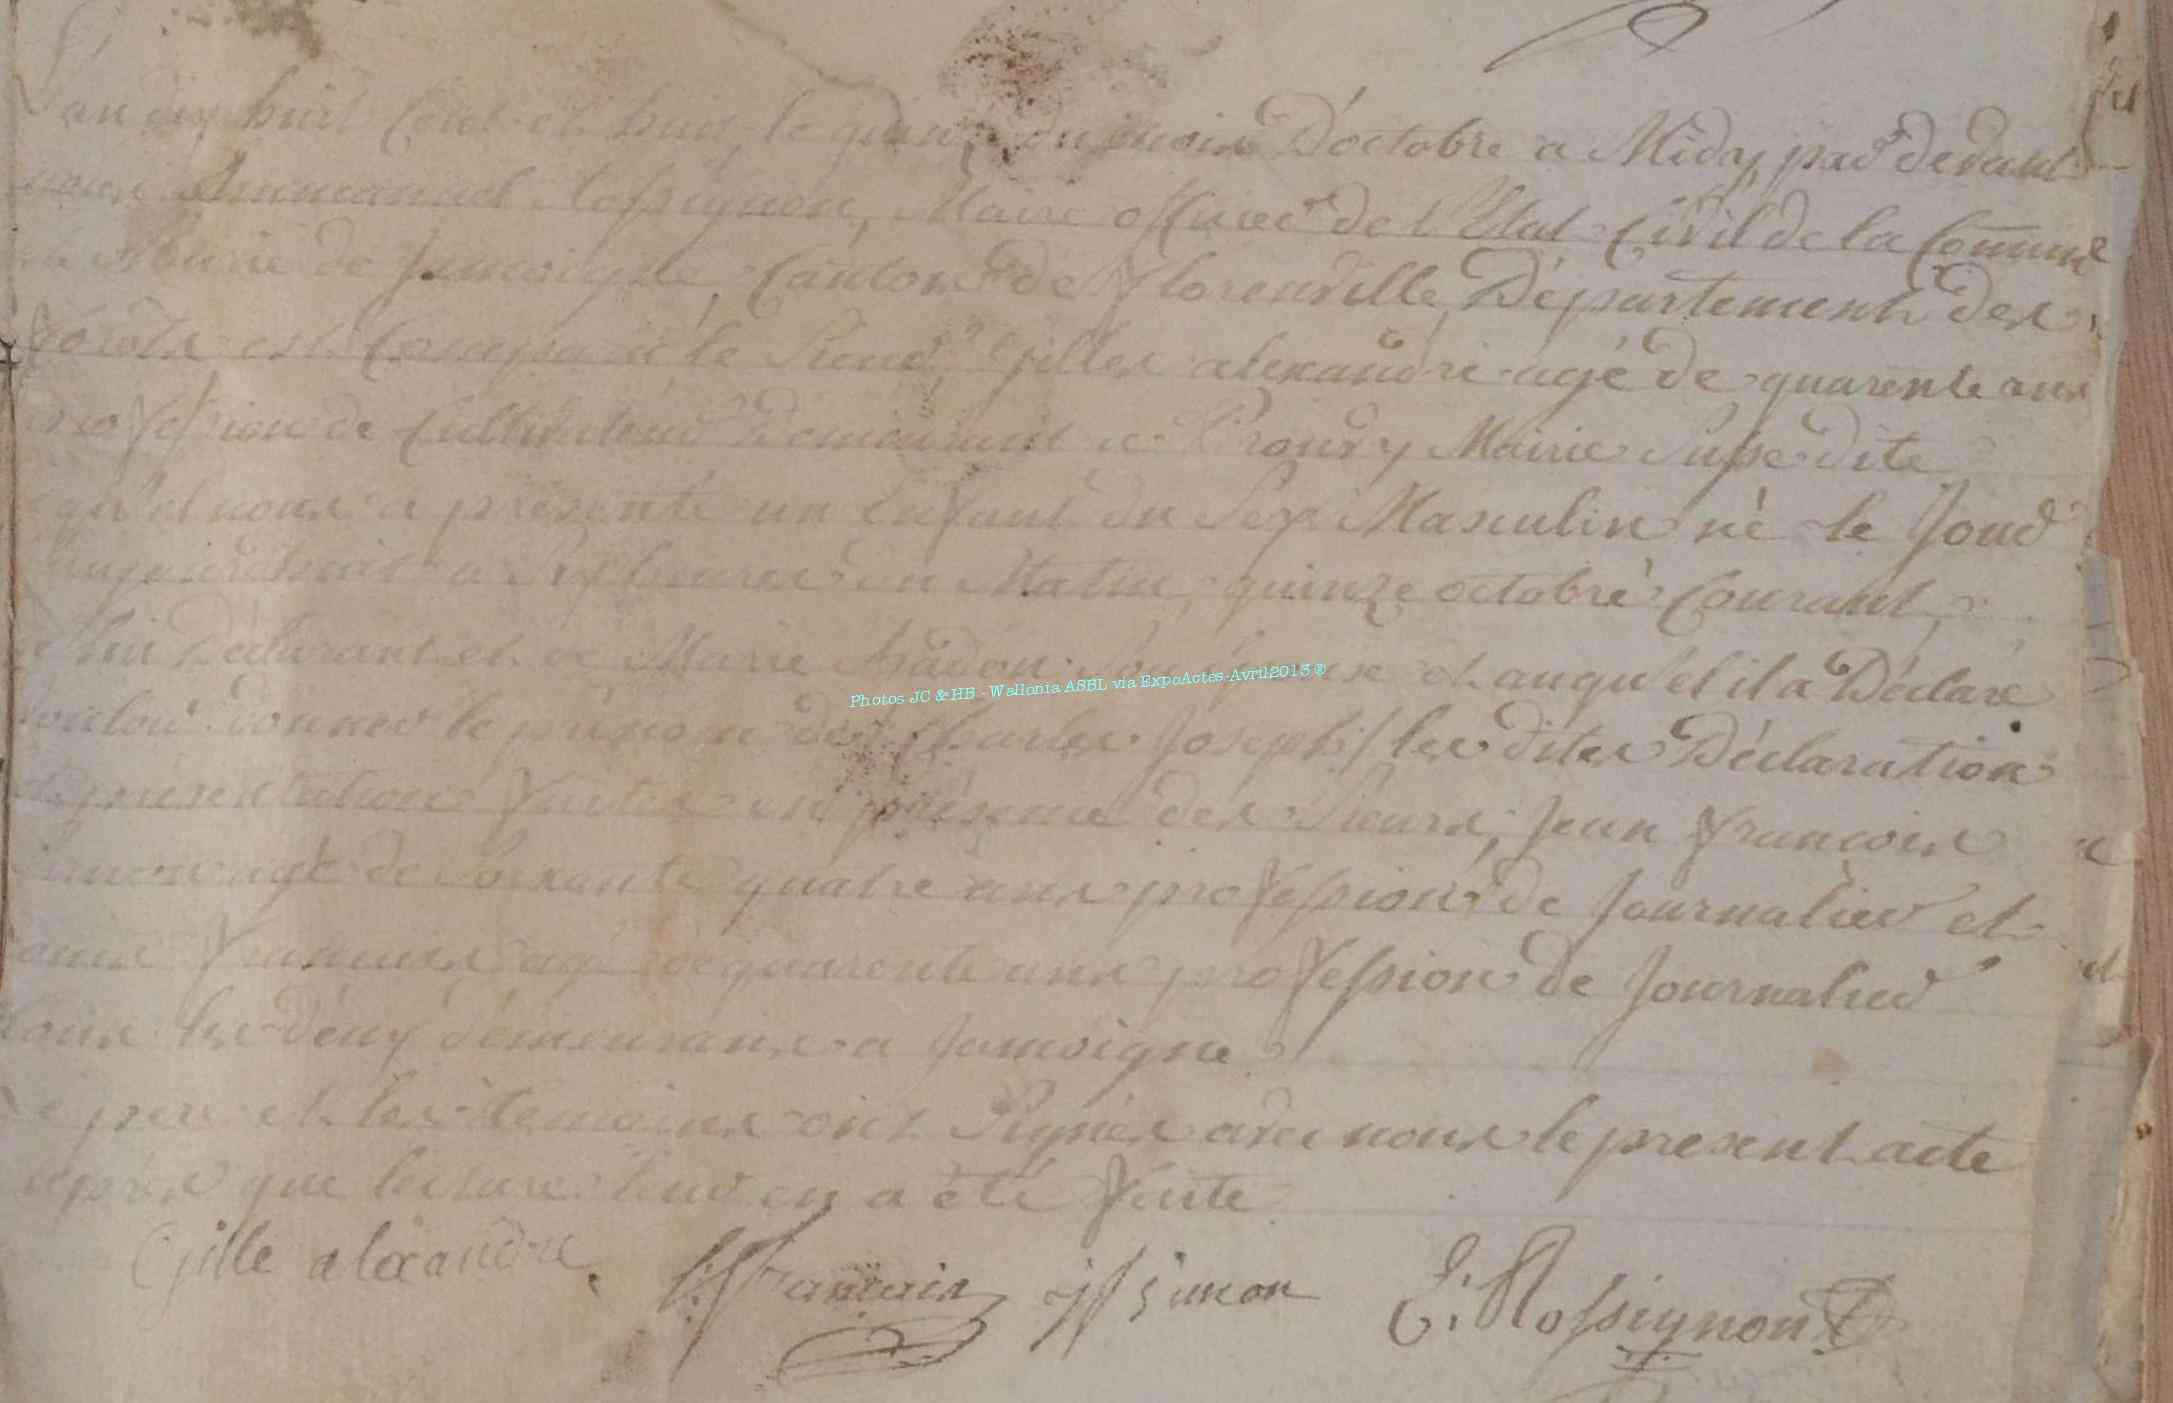 L'an dix huit Cent et huit, le quinze du mois D'octobre a Midy, par devant
nous Emmanuel Rossignon, Maire officier de l'Etat Civil de la Commune
Mairie de Jamoigne, Canton de Florenville Département des
forêts est Comparu le Sieur Gilles alexandre agé de quarente ans
profession de Cultivateur Demeurant a Prouvy Mairie Susdite
qu'el nous a présenté un Enfant du Sexe Masculin né le Jour
aujourdhuit a Six heures du Matin, quinze octobre Courant,
de lui Déclarant et de Marie son Epouse et auquel il a Déclaré
vouloir donner le prénom de Charles Joseph / les dites Déclaration
et présentation faites en présence des Sieurs, Jean françois
Simon agé de Soixante quatre ans profession de Journalier et
françois agé de quarente ans profession de Journalier
tous les deuy démeurans a Jamoigne
Le pere et les témoins ont Signés avec nous le present acte
après que lecture leur en a été faite
Gille alexandre. françois jf simon E: Rossignon
Photos JC & HB - Wallonia ASBL via ExpoActes-Avril2013 ®